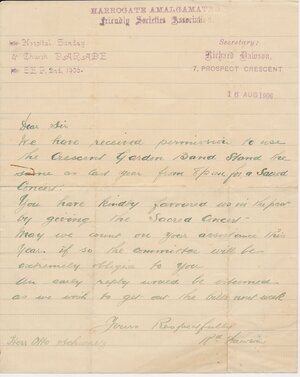 HARROGATE AMALGAMATED
Friendly Societies Association.
Hospital Sunday
Church PARADE
SEP. 2nd,
Secretary:
Richard Dawson,
7, PROSPECT CRESCENT.
16 AUG
Dear Sir
We have received permission to use
the Crescent Garden Band Stand the
same as last year from 8 pm for a Sacred
Concert.
You have kindly favored us in the past
by giving the Sacred Concert.
May we count on your assistance this
Year. if so the committee will be
extremely obliged to You
An early reply would be esteemed
as we wish to get out the bills next week
Yours Respectfully
Rd Dawson
Herr Otto Schwarz